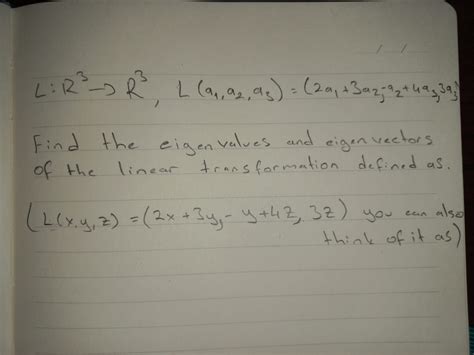 L: R³ → R³, L(a₁, a₂, a₃) = (2a₁ + 3a₂, -a₂ + 4a₃, 3a₃)
Find the eigenvalues and eigenvectors
of the linear transformation defined as.
(L(x,y,z) = (2x + 3y, - y + 4z, 3z) you can also
think of it as)